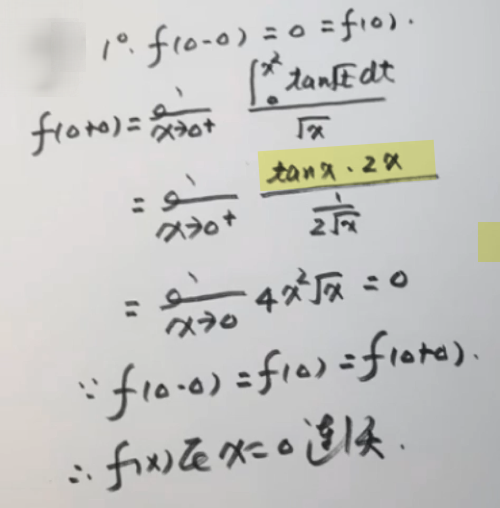 1°. f(0-0) = 0 = f(0).
f(0+0) = lim_{x→0+} \frac{∫_0^{x^2} tan√t dt}{√x}
= lim_{x→0+} \frac{tan x · 2x}{\frac{1}{2√x}}
= lim_{x→0} 4x^2√x = 0
∵ f(0-0) = f(0) = f(0+0).
∴ f(x)在x=0连续.